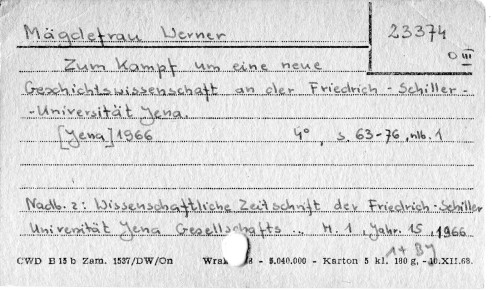 Mägdefrau Werner
23374
D III
Zum Kampf um eine neue
Geschichtswissenschaft an der Friedrich - Schiller -
- Universität Jena.
[Jena] 1966 4°, s. 63-76, nlb. 1
Nadb. z: Wissenschaftliche Zeitschrift der Friedrich - Schiller
Universität Jena Gesellschafts .. H. 1, Jahr. 15, 1966
1+ By
CWD B 15 b Zam. 1537/DW/On - 5.040.000 - Karton 5 kl. 180 g, -10.XII.68.